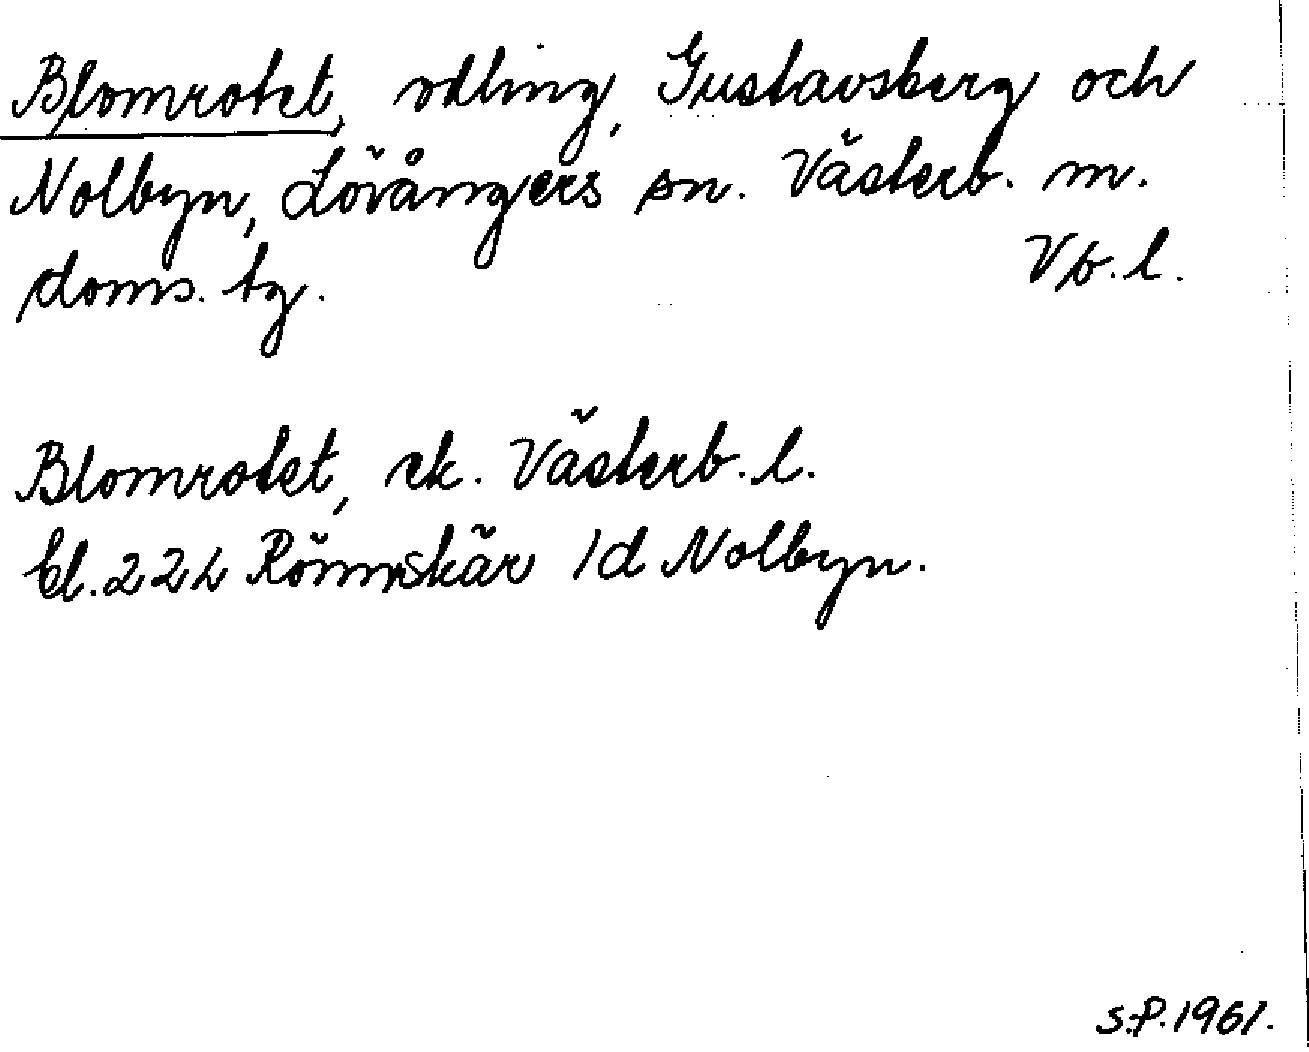 Blomrotet, odling, Gustavsberg och
Nolbyn, Lövångers sn. Västerb. m.
doms. tg. Vb. l.
Blomrotet, ek. Västerb. l.
bl. 22L Rönnskär 1d Nolbyn.
S.P. 1961.